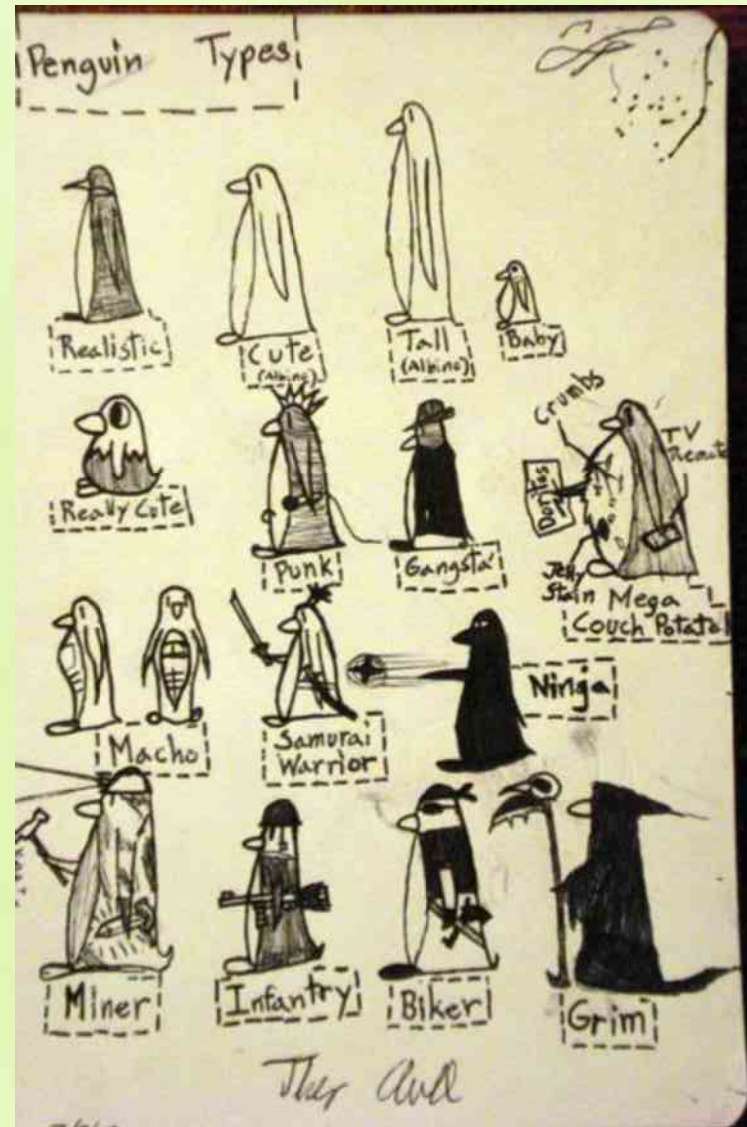 Penguin Types
Realistic
Cute
(Albino)
Tall
(Albino)
Baby
Really Cute
Punk
Gangsta'
Crumbs
TV
Remote
Doritos
Jelly
Stain
Mega
Couch Potato
Macho
Samurai
Warrior
Ninja
Miner
Infantry
Biker
Grim